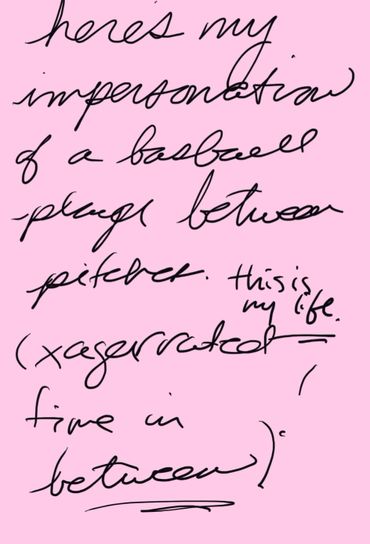 here's my
impersonation
of a basball
player between
pitches.
this is
my life.
(xagerrated
time in
between).